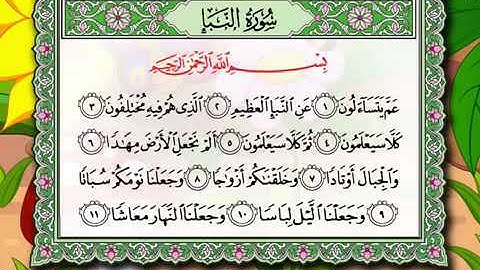 سُورَةُ النَّبَإِ
بِسْمِ اللَّهِ الرَّحْمَٰنِ الرَّحِيمِ
عَمَّ يَتَسَاءَلُونَ ١ عَنِ النَّبَإِ الْعَظِيمِ ٢ الَّذِي هُمْ فِيهِ مُخْتَلِفُونَ ٣
كَلَّا سَيَعْلَمُونَ ٤ ثُمَّ كَلَّا سَيَعْلَمُونَ ٥ أَلَمْ نَجْعَلِ الْأَرْضَ مِهَٰدًا ٦
وَالْجِبَالَ أَوْتَادًا ٧ وَخَلَقْنَٰكُمْ أَزْوَٰجًا ٨ وَجَعَلْنَا نَوْمَكُمْ سُبَاتًا
٩ وَجَعَلْنَا الَّيْلَ لِبَاسًا ١٠ وَجَعَلْنَا النَّهَارَ مَعَاشًا ١١